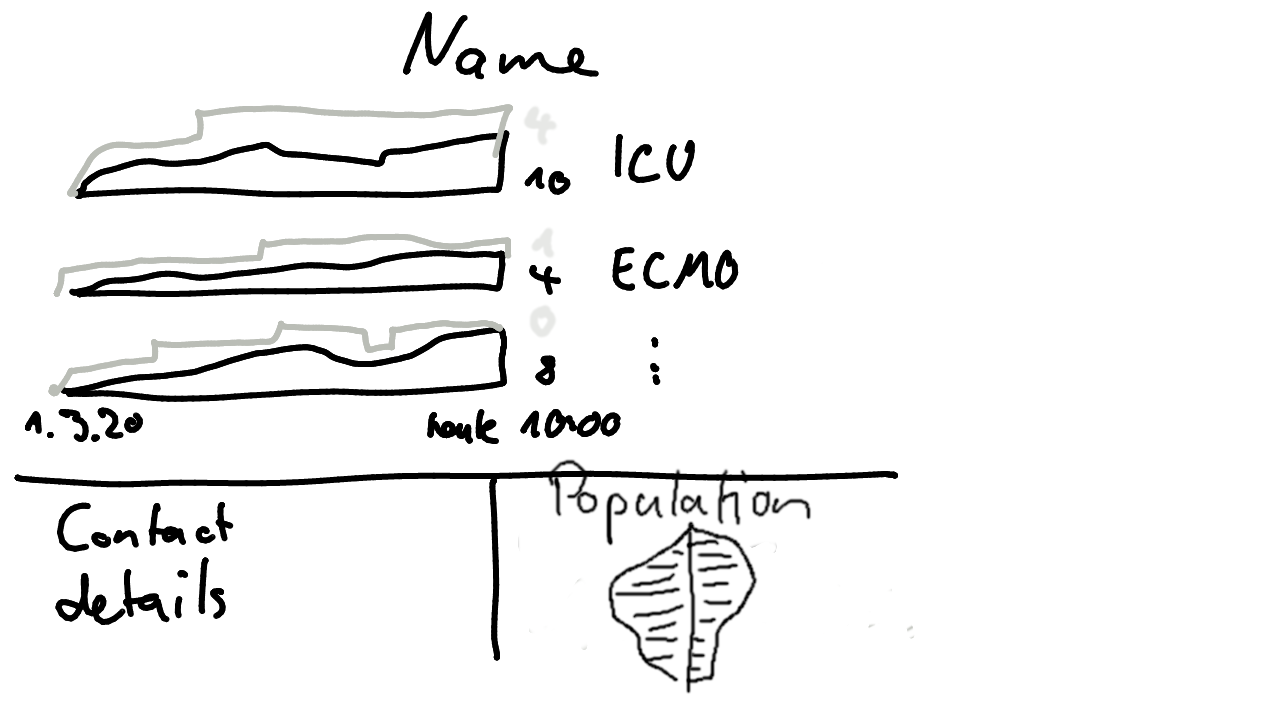 Name
4
10 ICU
1
4 ECMO
0
8 :
1.3.20 heute 10:00
Contact
details
Population